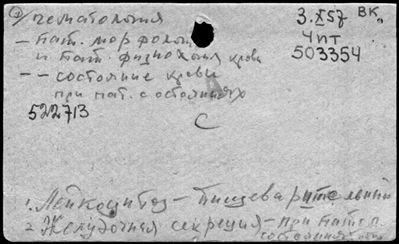 гематология
3.X57 ВК.
– пат. морфология
Ч пт
и пат. физиология крови
503354
– – состояние крови
при пат. состояниях
522713
С
1. Лейкоцитоз – пищеварительный
2. Желудочная секреция – при пат.
состояниях